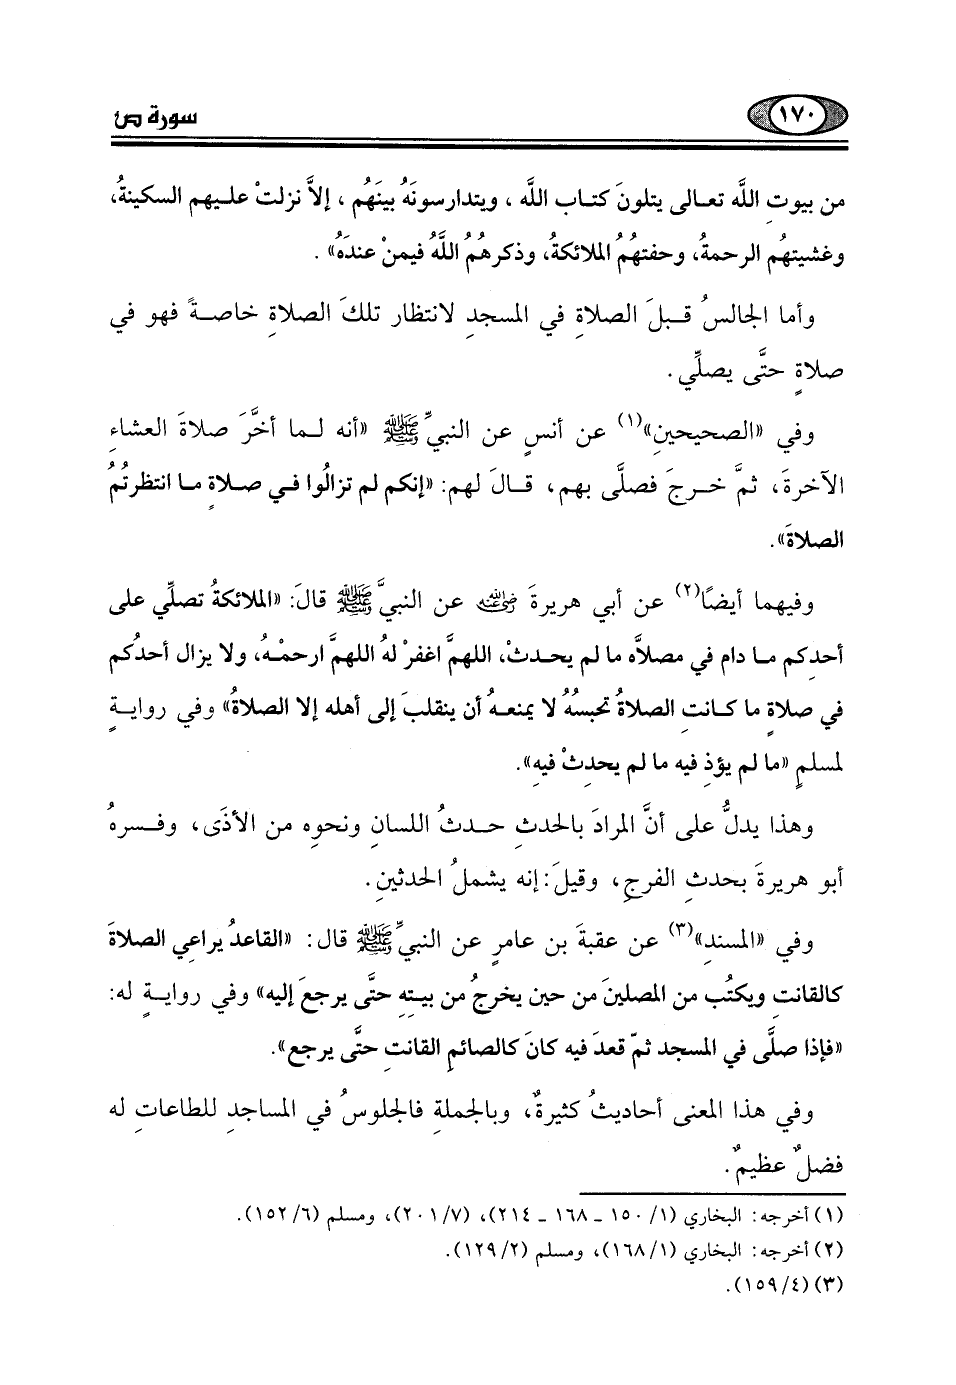 ١٧٠
سورة ص
من بيوتِ اللَّه تعالى يتلونَ كتاب اللَّه ، ويتدارسونَهُ بينَهُم ، إلاَّ نزلتْ عليهم السكينةُ،
وغشيتهُم الرحمةُ، وحفتهُمُ الملائكةُ، وذكرهُمُ اللَّهُ فيمنْ عندَهُ» .
وأما الجالسُ قبلَ الصلاةِ في المسجدِ لانتظار تلكَ الصلاةِ خاصةً فهو في
صلاةٍ حتَّى يصلِّي .
وفي «الصحيحينِ»(١) عن أنسٍ عن النبيِّ ﷺ «أنه لما أخَّرَ صلاةَ العشاءِ
الآخرةَ، ثمَّ خرجَ فصلَّى بهم، قالَ لهم: «إنكم لم تزالُوا في صلاةٍ ما انتظرتُمُ
الصلاةَ».
وفيهما أيضًا(٢) عن أبي هريرةَ رضي الله عنه عن النبيِّ ﷺ قالَ: «الملائكةُ تصلِّي على
أحدِكم ما دام في مصلاَّه ما لم يحدثْ، اللهمَّ اغفرْ لهُ اللهمَّ ارحمْهُ، ولا يزال أحدُكم
في صلاةٍ ما كانتِ الصلاةُ تحبسُهُ لا يمنعهُ أن ينقلبَ إلى أهله إلا الصلاةُ» وفي روايةٍ
لمسلمٍ «ما لم يؤذِ فيه ما لم يحدِثْ فيهِ».
وهذا يدلُّ على أنَّ المرادَ بالحدثِ حدثُ اللسانِ ونحوِه من الأذَى، وفسرهُ
أبو هريرةَ بحدثِ الفرجِ، وقيلَ: إنه يشملُ الحدثينِ.
وفي «المسندِ»(٣) عن عقبةَ بن عامرٍ عن النبيِّ ﷺ قال: «القاعدُ يراعِي الصلاةَ
كالقانتِ ويكتُب من المصلينَ من حين يخرجُ من بيتِهِ حتَّى يرجعَ إليه» وفي روايةٍ له:
«فإذا صلَّى في المسجد ثمّ قعدَ فيه كانَ كالصائمِ القانتِ حتَّى يرجع».
وفي هذا المعنى أحاديثُ كثيرةٌ، وبالجملةِ فالجلوسُ في المساجدِ للطاعاتِ له
فضلٌ عظيمٌ.
(١) أخرجه: البخاري (١/ ١٥٠ ـ ١٦٨ ـ ٢١٤)، (٧/ ٢٠١)، ومسلم (٦/ ١٥٢).
(٢) أخرجه: البخاري (١/ ١٦٨)، ومسلم (٢/ ١٢٩).
(٣) (٤/ ١٥٩).